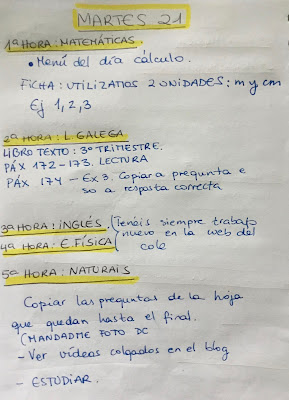 MARTES 21
1ª HORA: MATEMÁTICAS
• Menú del día cálculo.
FICHA: UTILIZAMOS 2 UNIDADES: m y cm
Ej 1, 2, 3
2ª HORA: L. GALEGA
LIBRO TEXTO: 3º TRIMESTRE.
PÁX 172-173. LECTURA
PÁX 174 - Ex 3. Copiar a pregunta e
so a resposta correcta
3ª HORA: INGLÉS. (Tenéis siempre trabajo
nuevo en la web del
4ª HORA: E. FÍSICA
cole
5ª HORA: NATURAIS
Copiar las preguntas de la hoja
que quedan hasta el final.
(MANDADME FOTO DC
- Ver vídeos colgados en el blog
- ESTUDIAR.